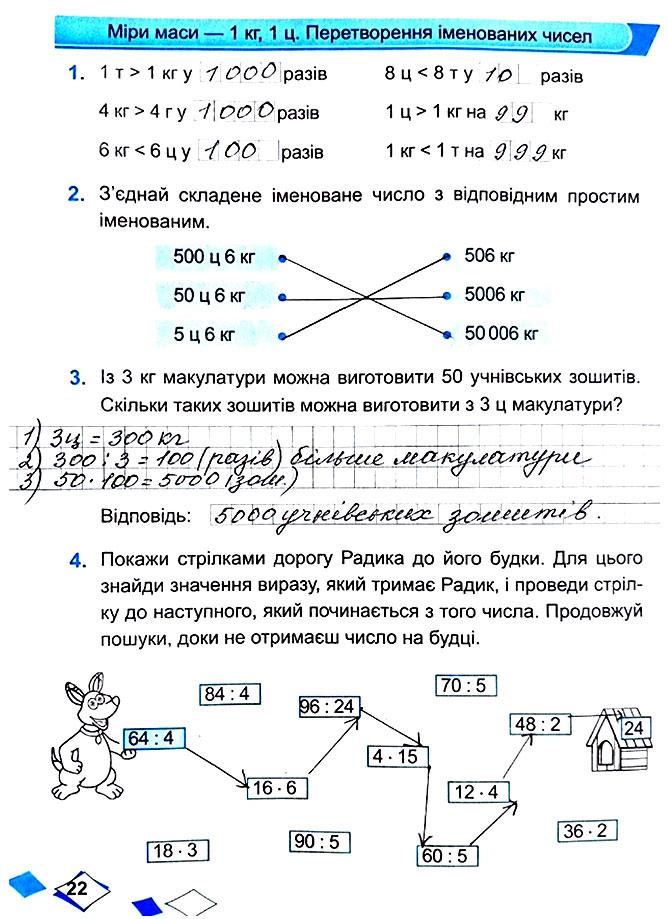 Міри маси — 1 кг, 1 ц. Перетворення іменованих чисел
1. 1 т > 1 кг у 1000 разів 8 ц < 8 т у 10 разів
4 кг > 4 г у 1000 разів 1 ц > 1 кг на 99 кг
6 кг < 6 ц у 100 разів 1 кг < 1 т на 999 кг
2. З'єднай складене іменоване число з відповідним простим
іменованим.
500 ц 6 кг 506 кг
50 ц 6 кг 5006 кг
5 ц 6 кг 50 006 кг
3. Із 3 кг макулатури можна виготовити 50 учнівських зошитів.
Скільки таких зошитів можна виготовити з 3 ц макулатури?
1) 3ц = 300 кг
2) 300 : 3 = 100 (разів) більше макулатури
3) 50 · 100 = 5000 (зош.)
Відповідь: 5000 учнівських зошитів.
4. Покажи стрілками дорогу Радика до його будки. Для цього
знайди значення виразу, який тримає Радик, і проведи стріл-
ку до наступного, який починається з того числа. Продовжуй
пошуки, доки не отримаєш число на будці.
84 : 4 70 : 5
96 : 24 48 : 2 24
64 : 4 4 · 15
16 · 6 12 · 4
18 · 3 90 : 5 60 : 5 36 · 2
22